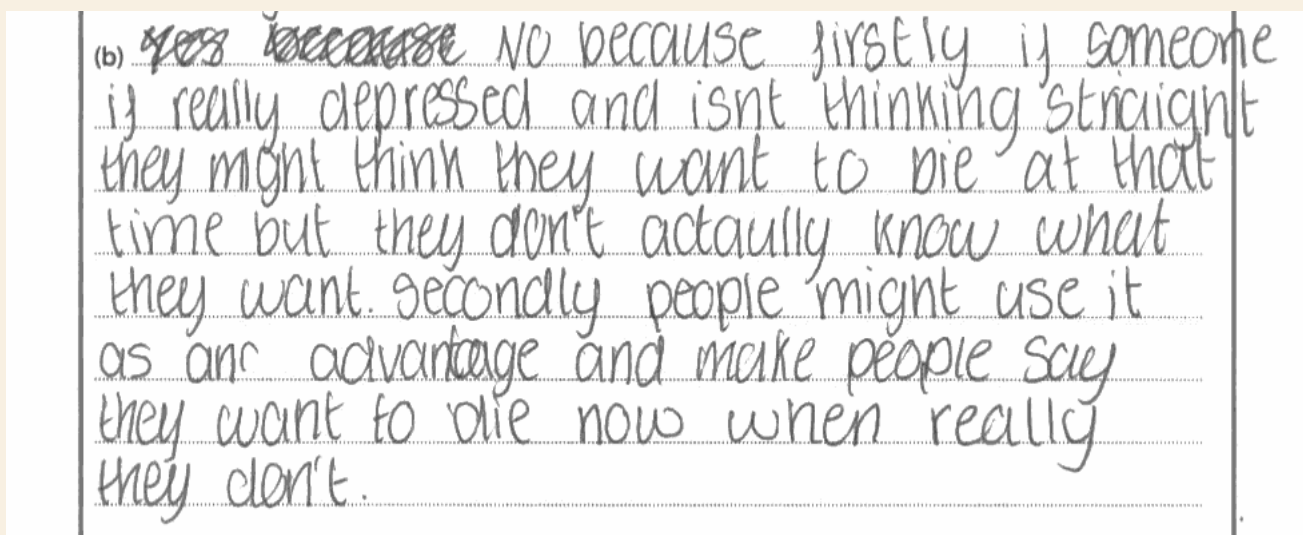 (b) yes because NO because firstly if someone
if really depressed and isnt thinking straight
they might think they want to die at that
time but they don't actaully know what
they want. secondly people might use it
as an advantage and make people say
they want to die now when really
they don't.